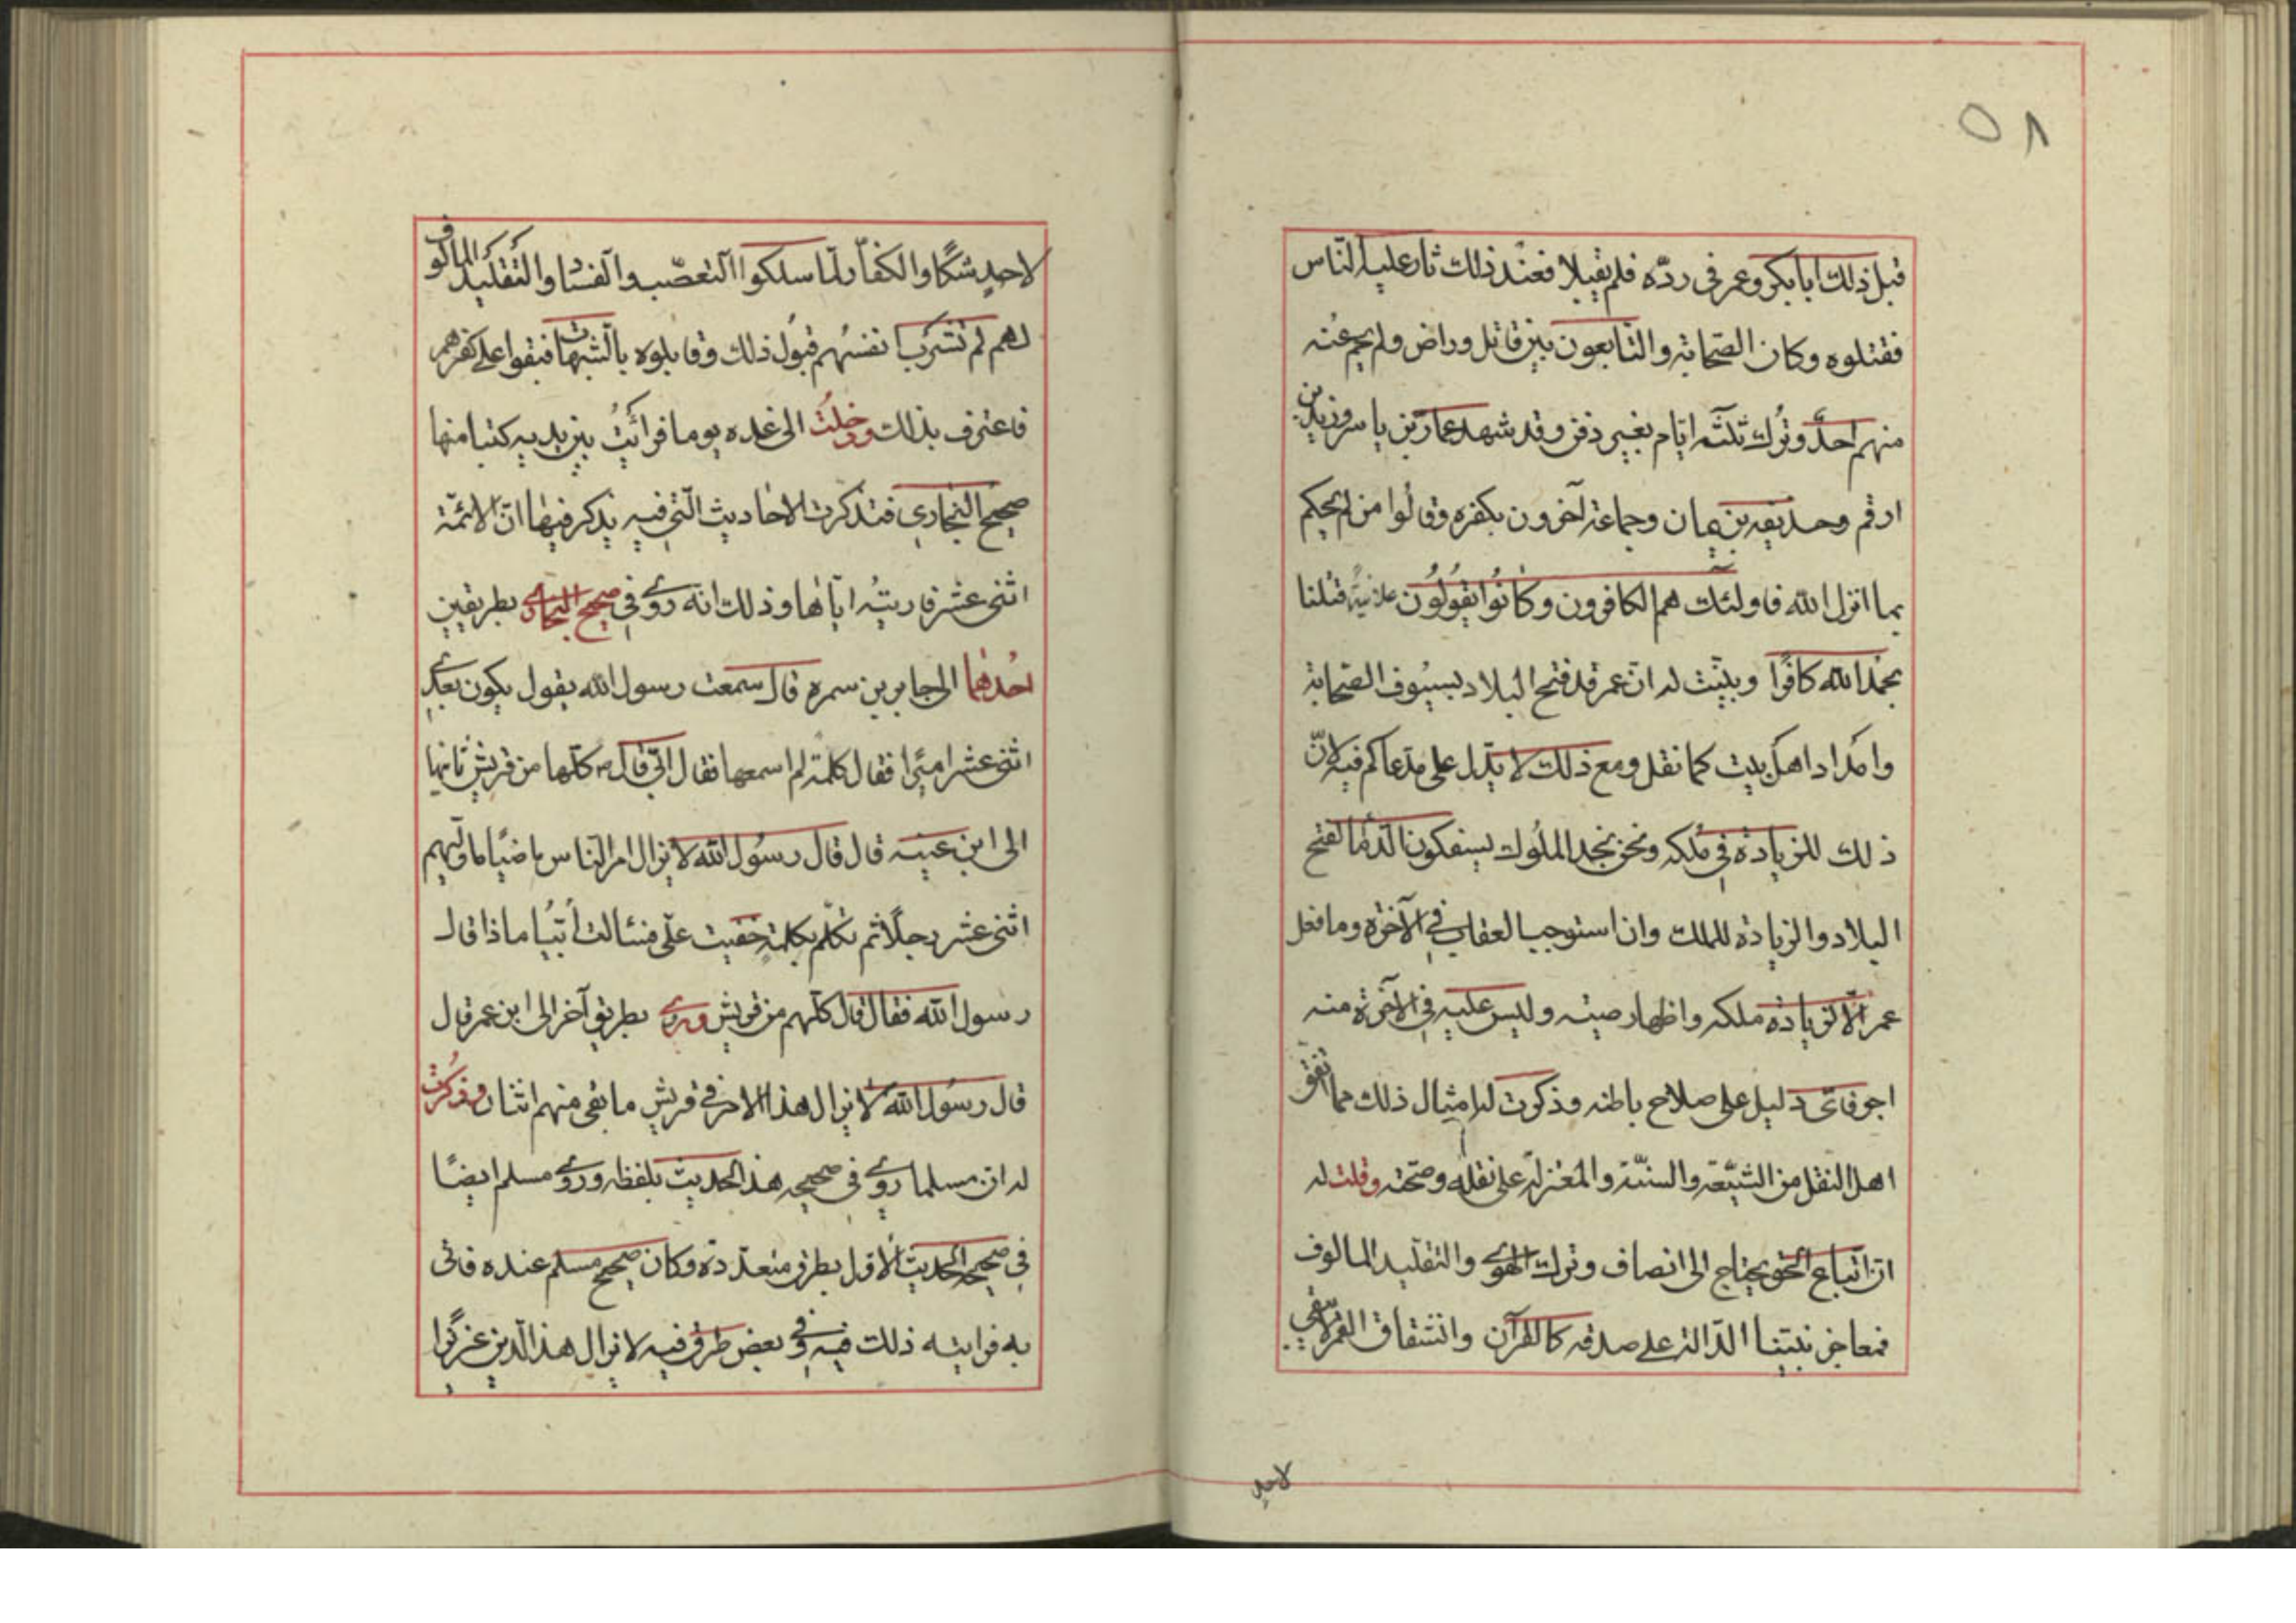 ٥٨
قبل ذلك ابابكر وعمر فى ردّه فلم يقبلا فعند ذلك ثار عليه النّاس
فقتلوه وكان الصّحابة والتّابعون بين قاتل وراض ولم يحم عنه
منهم احدٌ وتُرك ثلثة ايّام بغير دفن وقد شهد عمار بن ياسر وزيد بن
ارقم وحذيفه بن يمان وجماعة آخرون بكفره وقالوا من لم يحكم
بما انزل الله فاولئك هم الكافرون وكانُوا يقُولُون علانيةً قتلنا
بحمد الله كافرًا وبيّنت له انّ عمر قد فتح البلاد بسيُوف الصّحابة
وامداد اهل بيت كما نقل ومع ذلك لا يدّل على مدّعاكم فيه لانّ
ذلك للزيادة فى ملكه ونحن نجد الملُوك يسفكون الدّماء لفتح
البلاد والزيادة للملك وان استوجب العقاب فى الآخرة وما فعل
عمر الّا لزيادة ملكه واظهار صيته وليس عليه فى الآخرة منه
اجر فاىّ دليل على صلاح باطنه وذكرت له امثال ذلك مما اتفق
اهل النقل من الشّيعة والسنّة والمعتزلة على نقله وصحّته وقلت له
انّ اتباع الحق يحتاج الى انصاف وترك الهوى والتقليد المالوف
فمعاجز نبيّنا الدّالة على صدقه كالقرآن وانشقاق القمر لا يبقى
لاحدٍ
لاحدٍ شكًّا والكفّار لمّا سلكوا التعصّب والفساد والتّقليد المالوف
لهم لم تشرب انفسُهم قبُول ذلك وقابلوه بالشّبهات فبقوا على كفرهم
فاعترف بذلك ودخلتُ الى عنده يوما فرأيتُ بين يديه كتبا منها
صحيح البخارى فتذكرت الاحاديث الّتى فيه يذكر فيها انّ الائمّة
اثنى عشر فاريتُه ايّاها وذلك انه روى فى صحيح البخارى بطريقين
احُدهما الى جابر بن سمره قال سمعت رسول الله يقول يكون بعدى
اثنى عشر اميرًا فقال كلمة لم اسمعها فقال ابى قال كلها من قريش ثانيها
الى ابن عينيه قال قال رسُول الله لا يزال امر النّاس ماضيًا ما وليهم
اثنى عشر رجلًا ثم تكلّم بكلمةٍ خفيت علّى فسئالت أبىُ ماذا قال
رسول الله فقال قال كلّهم من قريش وروى بطريق آخر الى ابن عمر قال
قال رسُول الله لا يزال هذا الامر فى قريش ما بقى منهم اثنان وذكرُت
له ان مسلما روى فى صحيحه هذا الحديث بلفظه وروى مسلم ايضًا
فى صحيحه الحديث الاوّل بطرق متعدّدة وكان صحيح مسلم عنده فاتى
به فرايته ذلك فيه وفى بعض طرق فيه لا يزال هذا الّدين عزيزًا